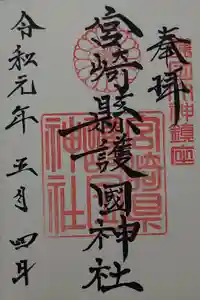 奉拝
宮崎縣護國神社
宮崎県
護国
神社
令和元年 五月 四日